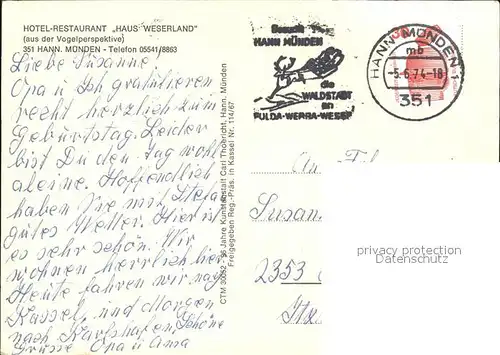 HOTEL-RESTAURANT „HAUS WESERLAND"
(aus der Vogelperspektive)
351 HANN. MÜNDEN - Telefon 05541/8863
Liebe Susanne!
Opa u Ich gratulieren
recht herzlich zum
Geburtstag. Leider
bist Du den Tag wohl
aleine. Hoffendlich
haben Sie mit Stefan
gutes Wetter. Hier ist
es sehr schön. Wir
wohnen herrlich hier
Heute fahren wir nach
Kassel, und Morgen
nach Karlshafen. Schöne
Grüsse Opa u Oma
CTM 30052 - 56 Jahre Kunstanstalt Carl Thoericht, Hann. Münden
Freigegeben Reg.-Präs. in Kassel Nr. 114/67
Besucht
HANN MÜNDEN
die
WALDSTADT
an
FULDA-WERRA-WESER
HANN. MÜNDEN 1
mb
-5.6.74-18
351
Susan
2353
privacy protection
AnsichtskartenCenter